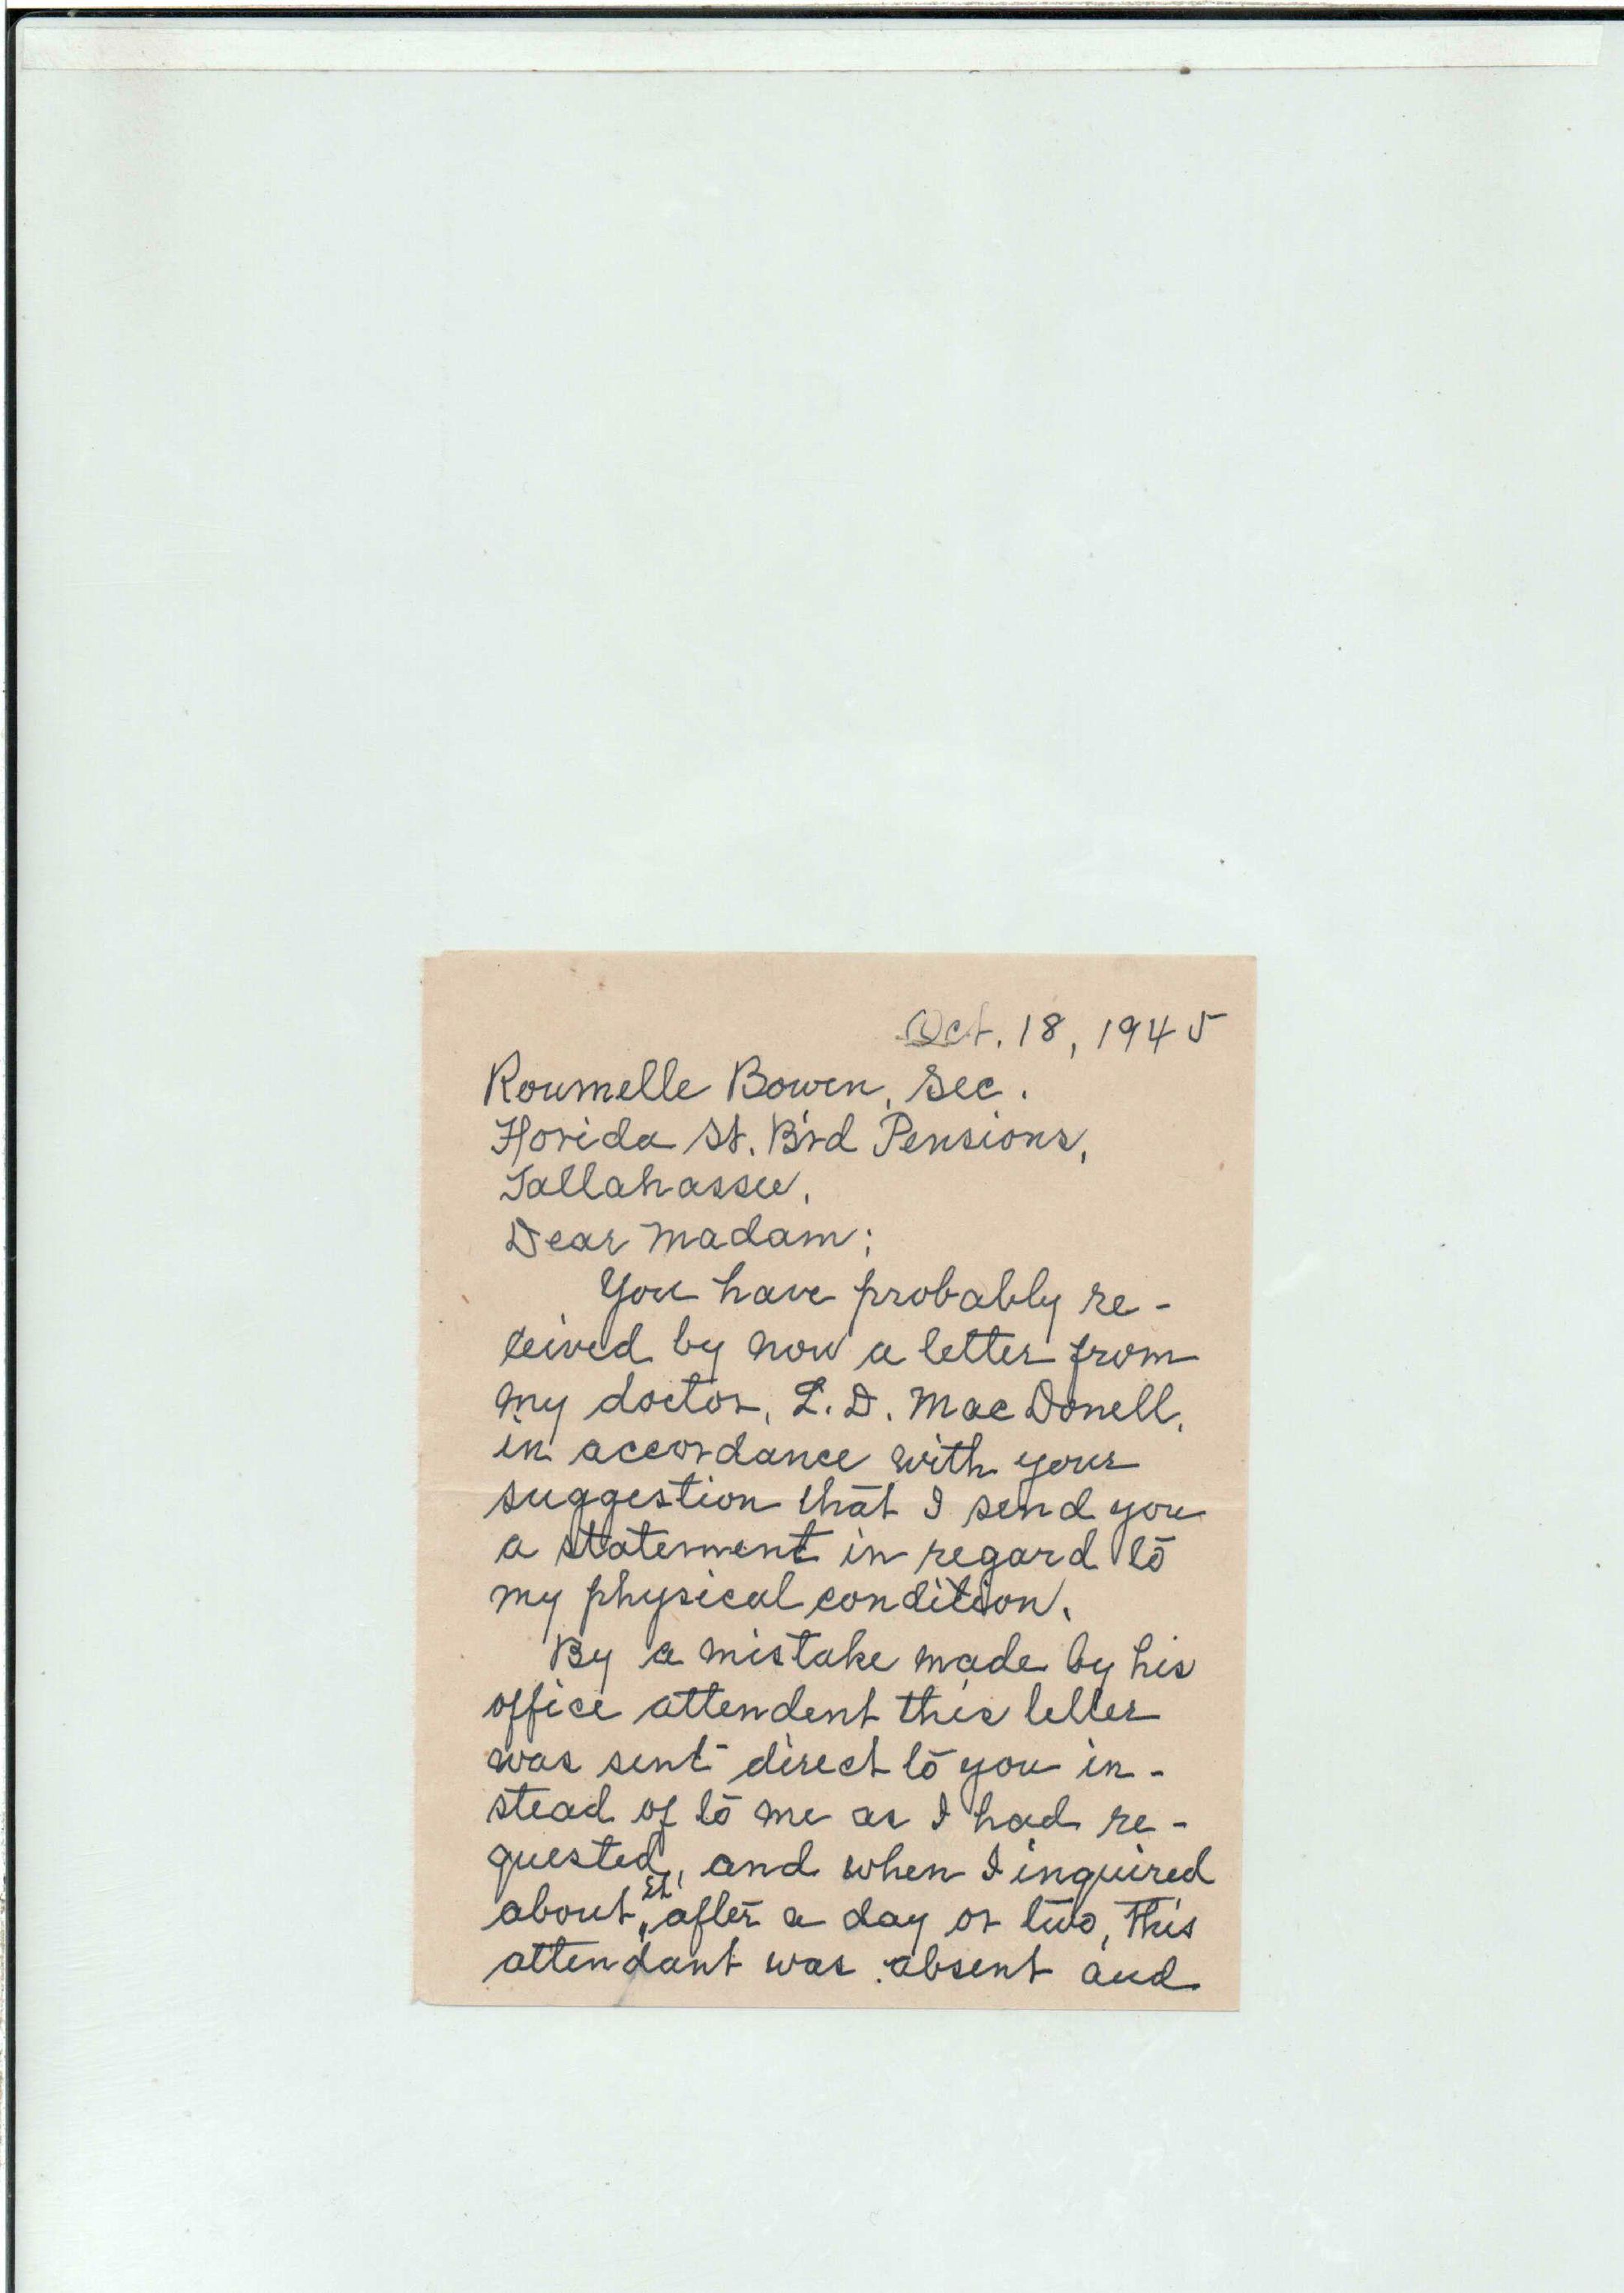 Oct. 18, 1945
Roumelle Bowen, Sec.
Florida St. B'rd Pensions,
Tallahassee.
Dear Madam:
You have probably re-
ceived by now a letter from
my doctor, L. D. MacDonell,
in accordance with your
suggestion that I send you
a statement in regard to
my physical condition.
By a mistake made by his
office attendent this letter
was sent direct to you in-
stead of to me as I had re-
quested, and when I inquired
about it, after a day or two, this
attendant was absent and